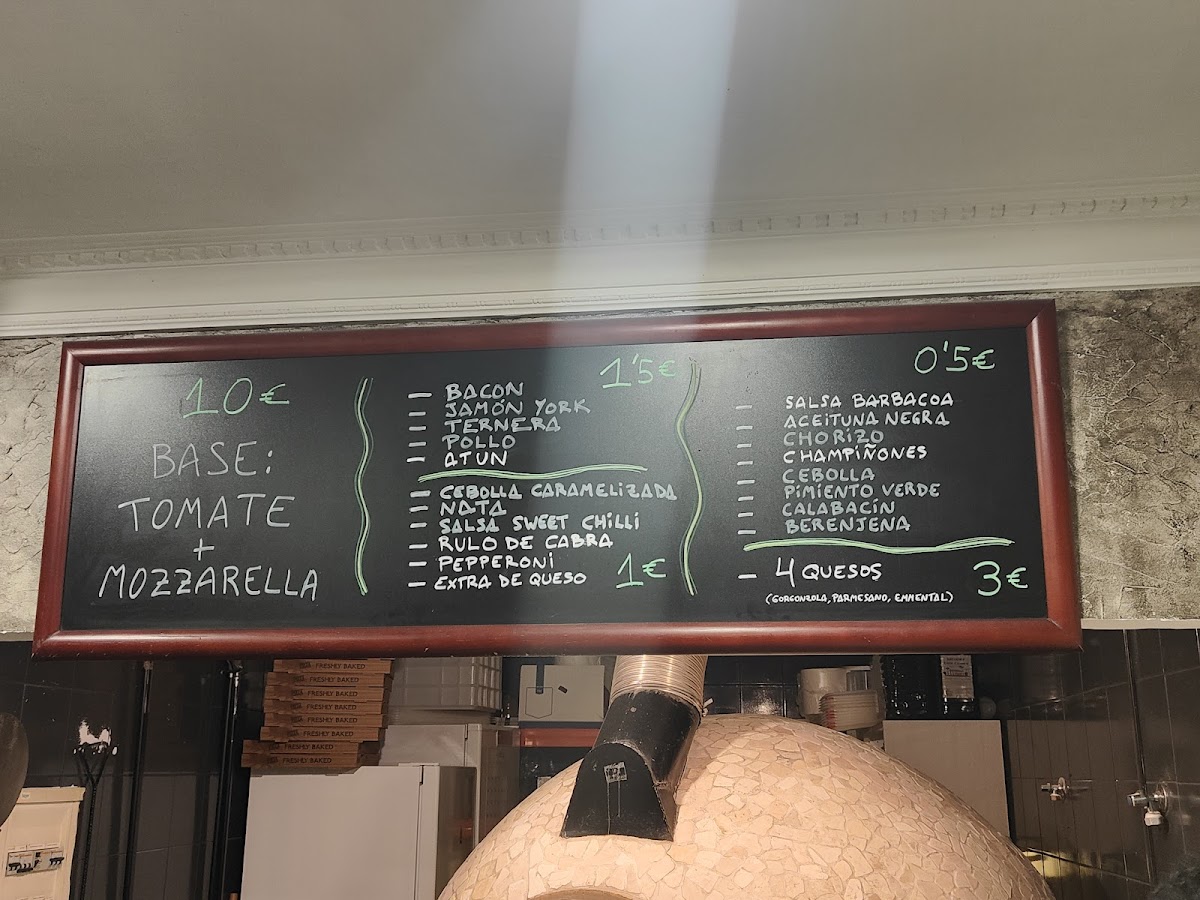 10€
BASE:
TOMATE
+
MOZZARELLA
1'5€
- BACON
- JAMÓN YORK
- TERNERA
- POLLO
- ATUN
- CEBOLLA CARAMELIZADA
- NATA
- SALSA SWEET CHILLI
- RULO DE CABRA
- PEPPERONI
- EXTRA DE QUESO
1€
0'5€
- SALSA BARBACOA
- ACEITUNA NEGRA
- CHORIZO
- CHAMPIÑONES
- CEBOLLA
- PIMIENTO VERDE
- CALABACÍN
- BERENJENA
- 4 QUESOS 3€
(GORGONZOLA, PARMESANO, EMMENTAL)
FRESHLY BAKED
FRESHLY BAKED
FRESHLY BAKED
FRESHLY BAKED
FRESHLY BAKED
FRESHLY BAKED
FRESHLY BAKED
FRESHLY BAKED